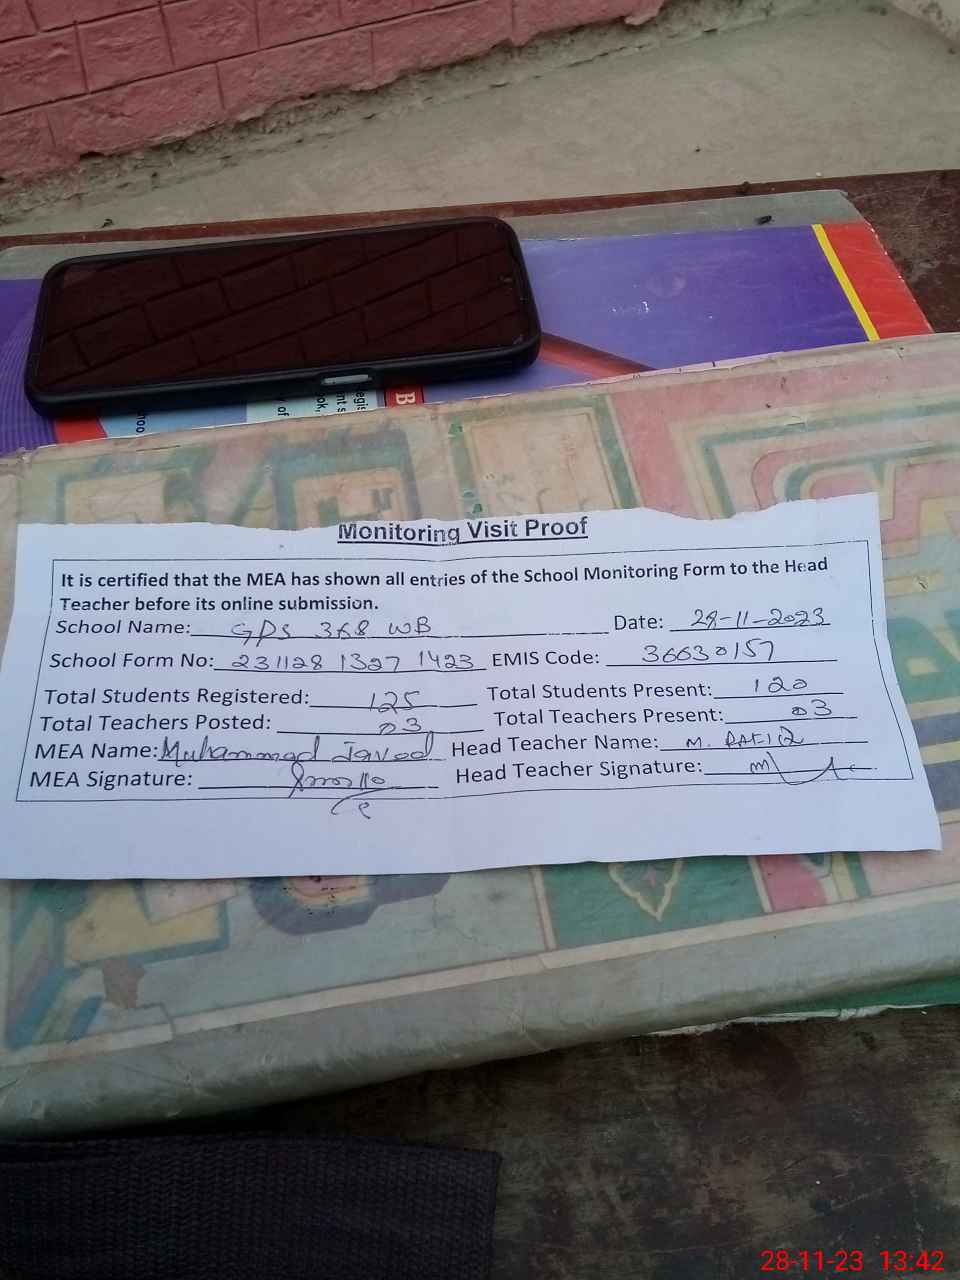 Monitoring Visit Proof
It is certified that the MEA has shown all entries of the School Monitoring Form to the Head
Teacher before its online submission.
School Name: GPS 368 WB Date: 28-11-2023
School Form No: 231128 1327 1423 EMIS Code: 36630157
Total Students Registered: 125 Total Students Present: 120
Total Teachers Posted: 03 Total Teachers Present: 03
MEA Name: Muhammad Javed Head Teacher Name: M. RAFIQ
MEA Signature: Head Teacher Signature:
28-11-23 13:42